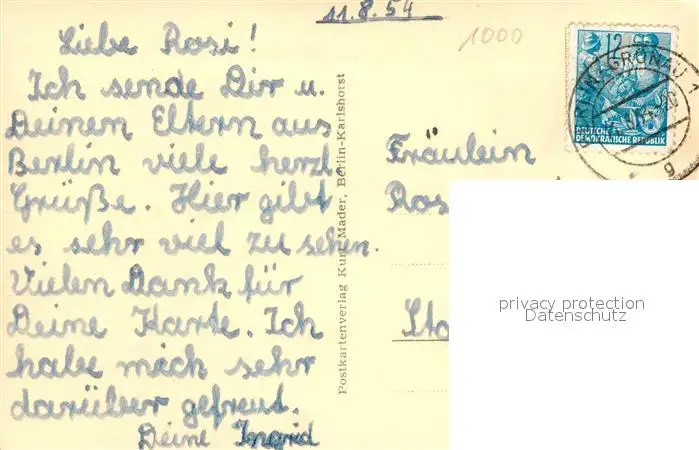 11.8.54
1000
Liebe Rosi!
Ich sende Dir u.
Deinen Eltern aus
Berlin viele herzl.
Grüße. Hier gibt
es sehr viel zu sehen.
Vielen Dank für
Deine Karte. Ich
habe mich sehr
darüber gefreut.
Deine Ingrid
Postkartenverlag Kurt Mader, Berlin-Karlshorst
12
DEUTSCHE
DEMOKRATISCHE REPUBLIK
GRÜNAU 1
g
Fräulein
Ros
Sto
privacy protection
Datenschutz